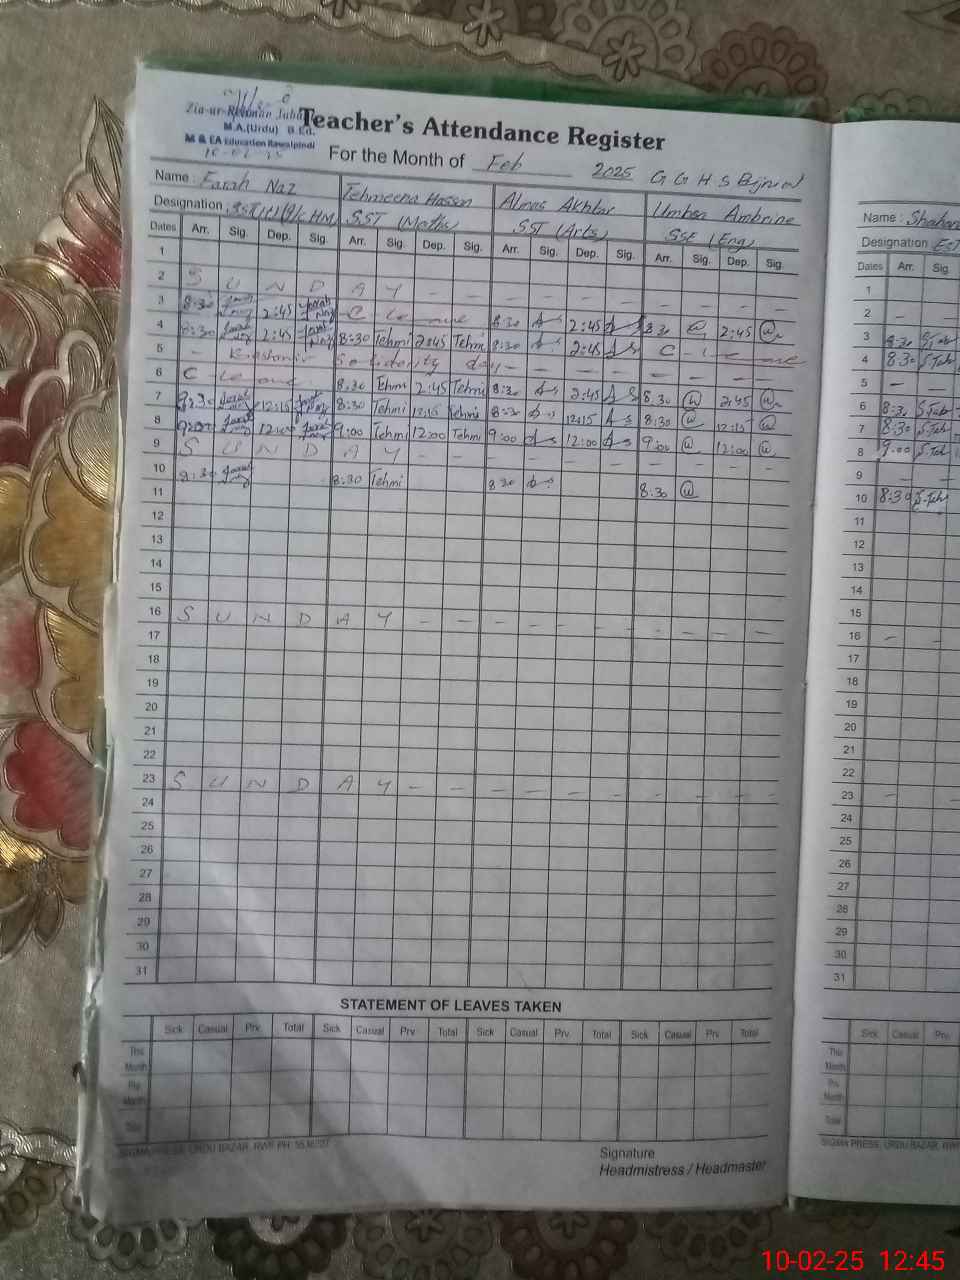 Zia-ur-Rehman
M.A.(Urdu) B.Ed.
M & EA Education Rawalpindi
10-02-25
Teacher's Attendance Register
For the Month of Feb 2025 G G H S
Name : Farah Naz Tehmeena Hassan Almas Akhtar Umben Ambrine
Designation : SST (Maths) SST (Arts) SSE (Eng)
Dates Arr. Sig. Dep. Sig. Arr. Sig. Dep. Sig. Arr. Sig. Dep. Sig. Arr. Sig. Dep. Sig.
1
2 S U N D A Y - - - - - - - - - -
3 8:30 Farah Naz 2:45 Farah Naz C-leave 8:30 2:45 8:30 2:45
4 8:30 Farah Naz 2:45 Farah Naz 8:30 Tehmi 2:45 Tehmi 8:30 2:45 C - leave
5 - Kashmir Solidarity day - - - - - - - -
6 C-leave 8:30 Tehmi 2:45 Tehmi 8:30 2:45 8:30 2:45
7 8:30 Farah Naz 12:15 Farah Naz 8:30 Tehmi 12:15 Tehmi 8:30 12:15 8:30 12:15
8 9:00 Farah Naz 12:00 Farah Naz 9:00 Tehmi 12:00 Tehmi 9:00 12:00 9:00 12:00
9 S U N D A Y - - - - - - - - - -
10 8:30 Farah Naz 8:30 Tehmi 8:30 8:30
11
12
13
14
15
16 S U N D A Y - - - - - - - - - -
17
18
19
20
21
22
23 S U N D A Y - - - - - - - - - -
24
25
26
27
28
29
30
31
STATEMENT OF LEAVES TAKEN
Sick Casual Prv. Total Sick Casual Prv. Total Sick Casual Prv. Total Sick Casual Prv. Total
This Month
Pre Month
Total
SIGMA PRESS, URDU BAZAR, RWP. PH:
Signature
Headmistress / Headmaster
Name :
Designation
Dates Arr. Sig.
1
2 - -
3 8:30
4 8:30
5 - -
6 8:30
7 8:30
8 9:00
9 - -
10 8:30
11
12
13
14
15
16 - -
17
18
19
20
21
22
23 -
24
25
26
27
28
29
30
31
Sick Casual Prv.
This Month
Pre Month
Total
SIGMA PRESS, URDU BAZAR, RWP
10-02-25 12:45